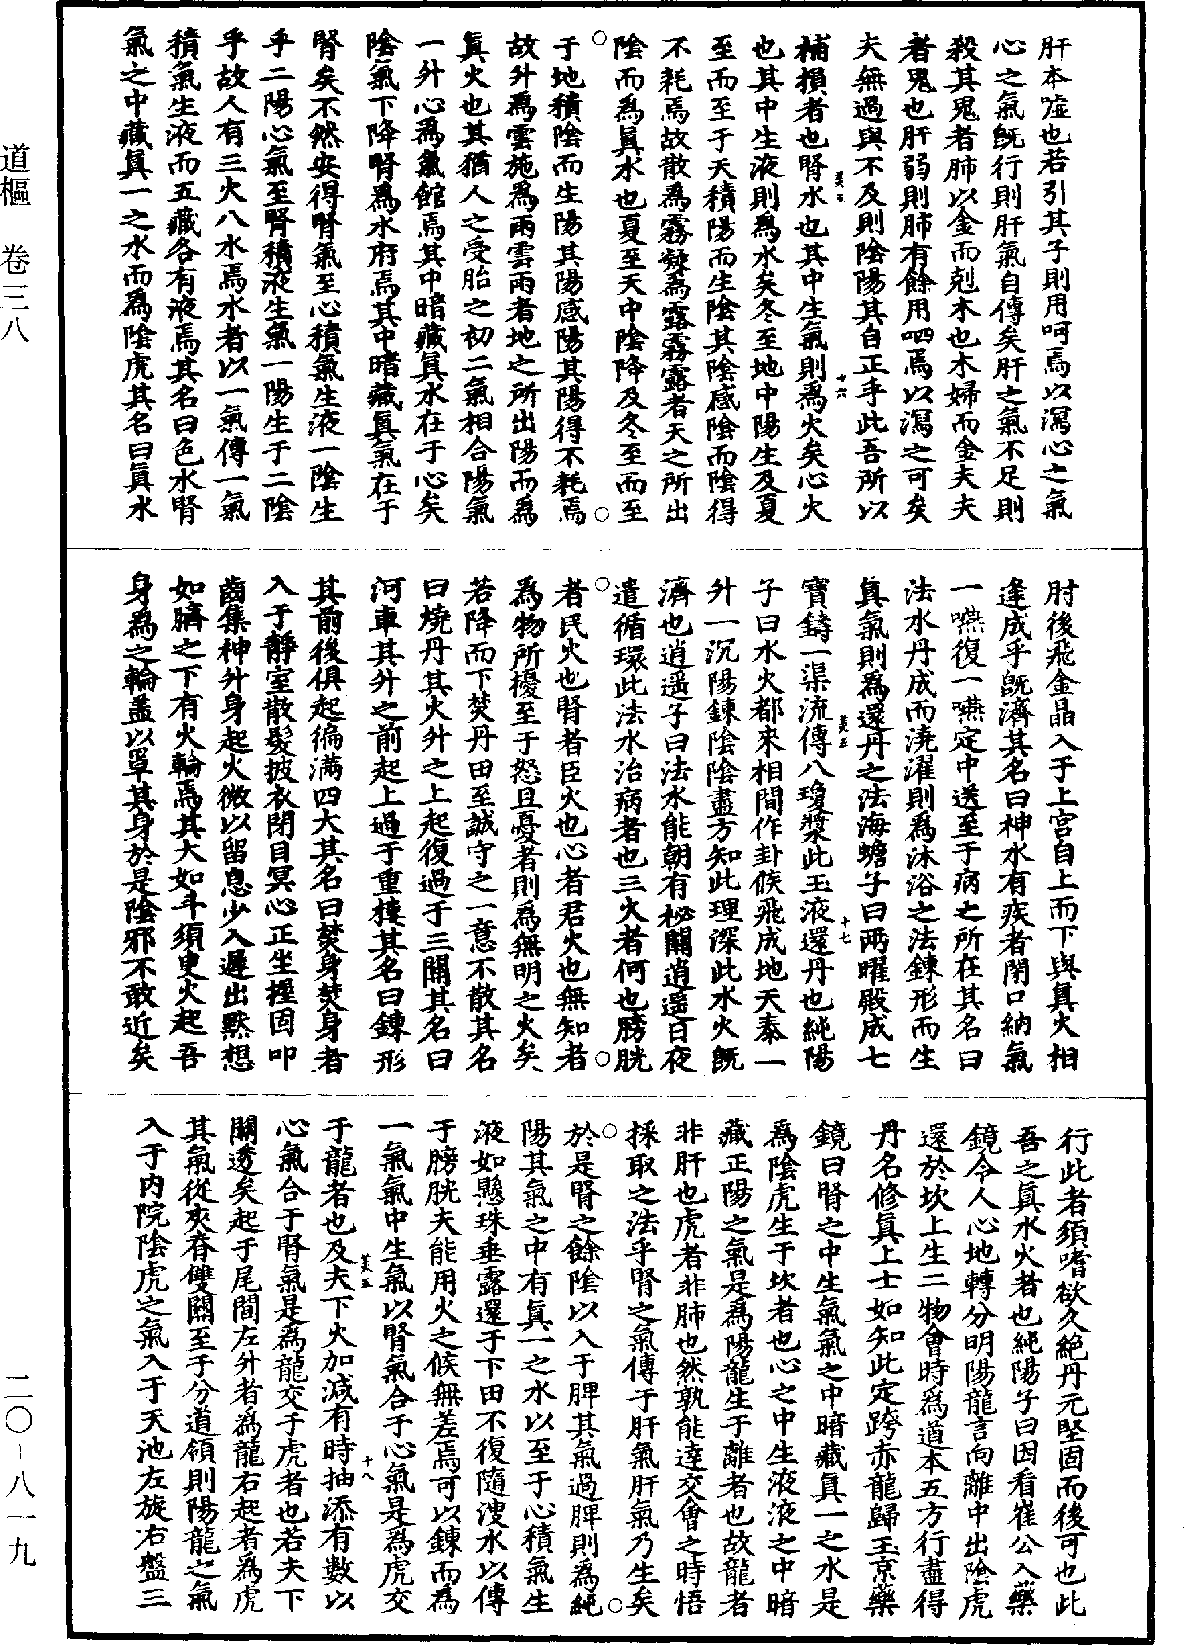 道樞　卷三八
二〇－八一九
肝本噓也若引其子則用呵焉以瀉心之氣
心之氣旣行則肝氣自傳矣肝之氣不足則
殺其鬼者肺以金而剋木也木婦而金夫夫
者鬼也肝弱則肺有餘用呬焉以瀉之可矣
夫無過與不及則陰陽其自正乎此吾所以
補損者也腎水也其中生氣則爲火矣心火
也其中生液則爲水矣冬至地中陽生及夏
至而至于天積陽而生陰其陰感陰而陰得
不耗焉故散爲霧鍊爲露霧露者天之所出
陰而爲眞水也夏至天中陰降及冬至而至
于地積陰而生陽其陽感陽其陽得不耗焉
故升爲雲施爲雨雲雨者地之所出陽而爲
眞火也其猶人之受胎之初二氣相合陽氣
一升心爲氣館焉其中暗藏眞水在于心矣
陰氣下降腎爲水府焉其中暗藏眞氣在于
腎矣不然安得腎氣至心積氣生液一陰生
乎二陽心氣至腎積液生氣一陽生于二陰
乎故人有三火八水焉水者以一氣傳一氣
積氣生液而五藏各有液焉其名曰色水腎
氣之中藏眞一之水而爲陰虎其名曰眞水
肘後飛金晶入于上宮自上而下與眞火相
逢成乎旣濟其名曰神水有疾者閉口納氣
一嚥復一嚥定中送至于病之所在其名曰
法水丹成而澆濯則爲沐浴之法鍊形而生
眞氣則爲還丹之法海蟾子曰兩曜殿成七
寶鑄一渠流傳八瓊漿此玉液還丹也純陽
子曰水火都來相間作卦候飛成地天泰一
升一沉陽鍊陰陰盡方知此理深此水火旣
濟也逍遥子曰法水能朝有秘關逍遥日夜
遣循環此法水治病者也三火者何也膀胱
者民火也腎者臣火也心者君火也無知者
爲物所擾至于怒且憂者則爲無明之火矣
若降而下焚丹田至誠守之一意不散其名
曰燒丹其火升之上起復過于三關其名曰
河車其升之前起上過于重樓其名曰鍊形
其前後俱起徧滿四大其名曰焚身焚身者
入于靜室散髮披衣閉目冥心正坐握固叩
齒集神升身起火微以留息少入遲出默想
如臍之下有火輪焉其大如斗須臾火起吾
身爲之輪蓋以罩其身於是陰邪不敢近矣
行此者須嗜欲久絶丹元堅固而後可也此
吾之眞水火者也純陽子曰因看崔公入藥
鏡令人心地轉分明陽龍言向離中出陰虎
還於坎上生二物會時爲道本五方行盡得
丹名修眞上士如知此定跨赤龍歸玉京藥
鏡曰腎之中生氣氣之中暗藏眞一之水是
爲陰虎生于坎者也心之中生液液之中暗
藏正陽之氣是爲陽龍生于離者也故龍者
非肝也虎者非肺也然孰能達交會之時悟
採取之法乎腎之氣傳于肝氣肝氣乃生矣
於是腎之餘陰以入于脾其氣過脾則爲純
陽其氣之中有眞一之水以至于心積氣生
液如懸珠垂露還于下田不復隨溲水以傳
于膀胱夫能用火之候無差焉可以鍊而爲
一氣氣中生氣以腎氣合于心氣是爲虎交
于龍者也及夫下火加減有時抽添有數以
心氣合于腎氣是爲龍交于虎者也若夫下
關透矣起于尾閭左升者爲龍右起者爲虎
其氣從夾脊雙關至于分道領則陽龍之氣
入于內院陰虎之氣入于天池左旋右盤三
十六
十七
十八